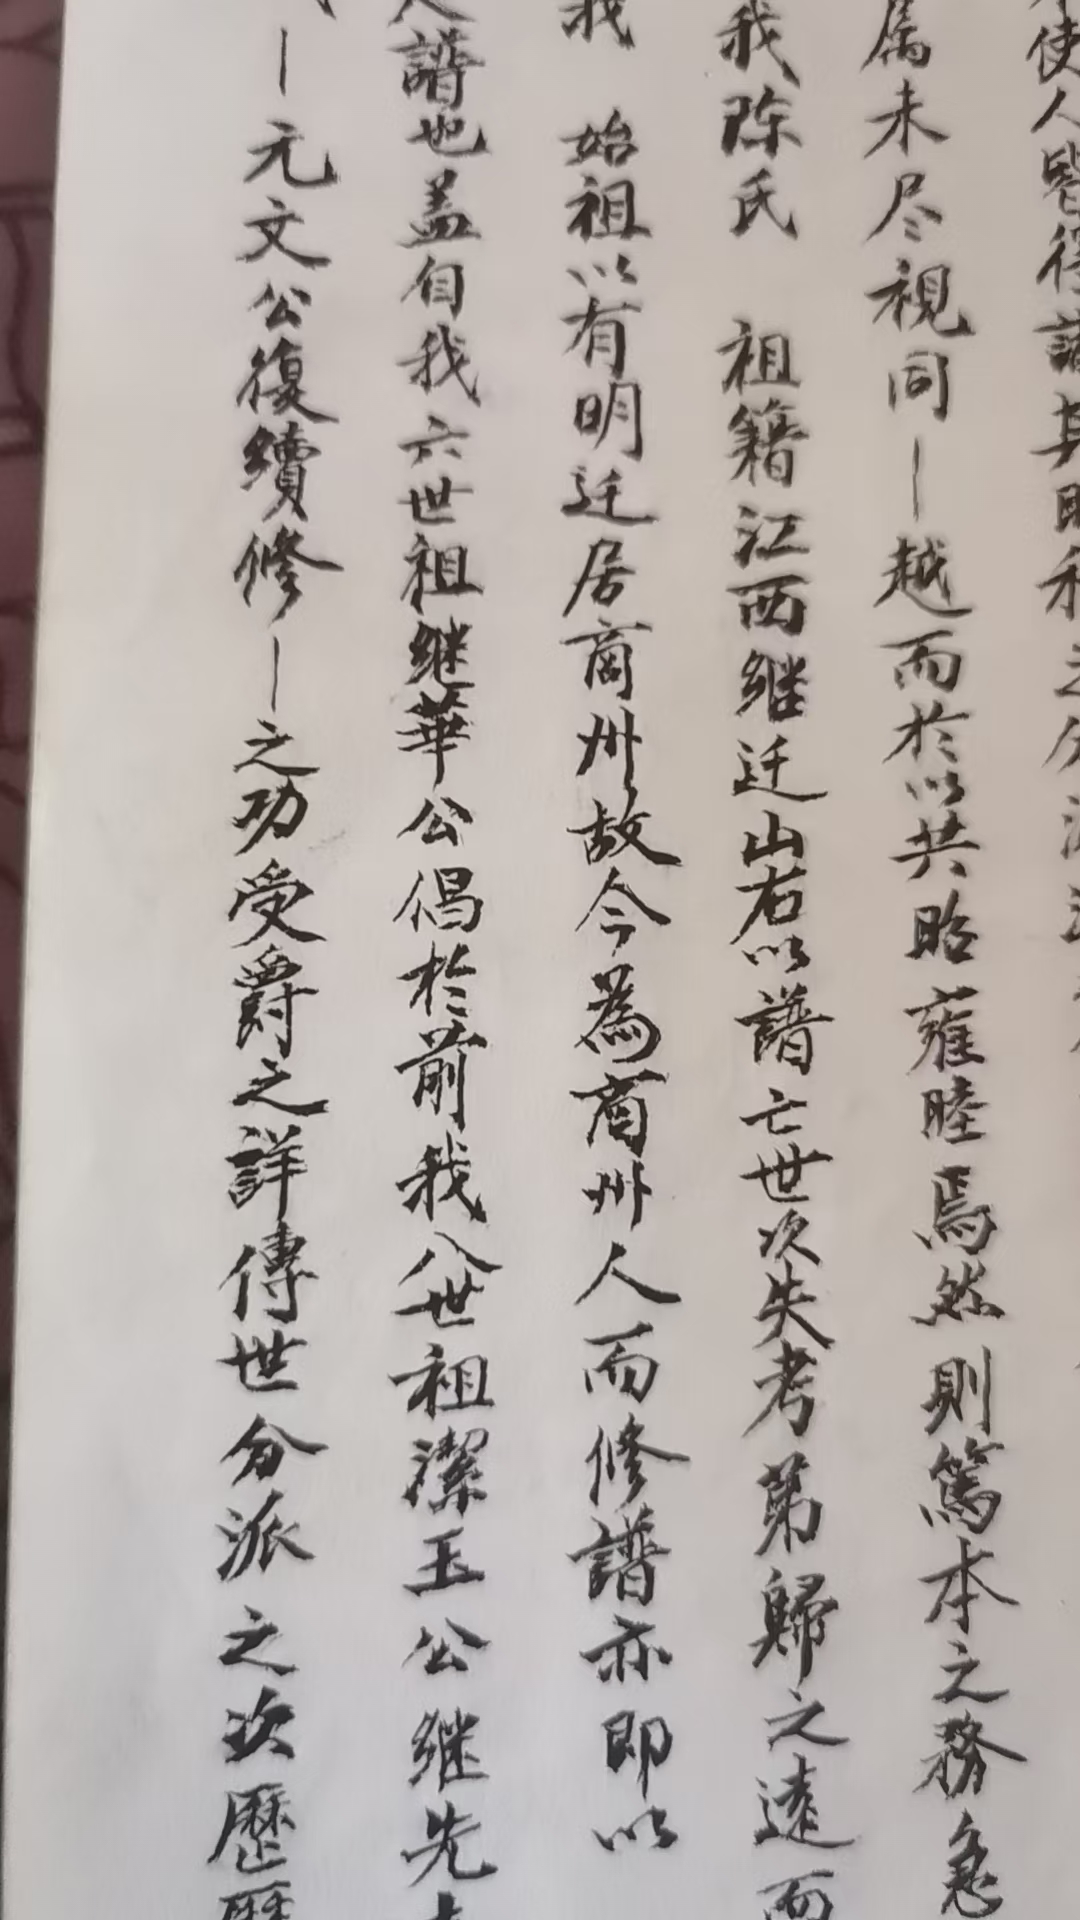 使人皆得諸其昭和之分派
属未尽視同一越而於以共昭雍睦焉然則篤本之務急
我陈氏 祖籍江西继迁山右以譜亡世次失考第歸之遠而
我 始祖以有明迁居商州故今為商州人而修譜亦即以
人譜也盖自我六世祖继華公倡於前我八世祖潔玉公继先
一元文公復續修一之功受爵之詳傳世分派之次歷歷